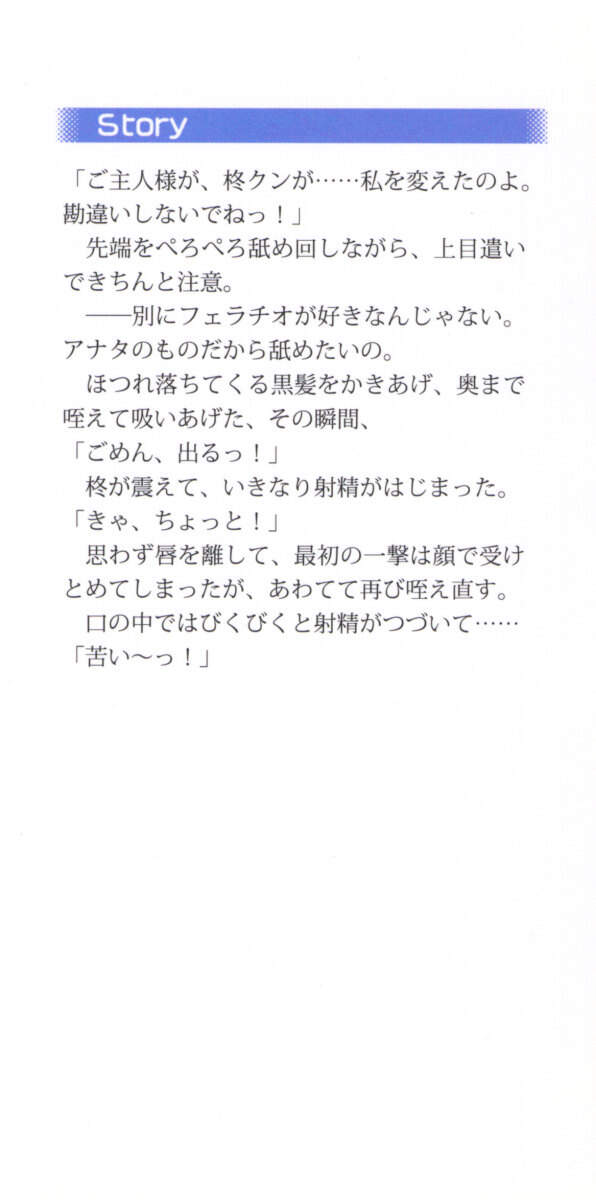 Story
「ご主人様が、柊クンが……私を変えたのよ。
勘違いしないでねっ！」
　先端をぺろぺろ舐め回しながら、上目遣い
できちんと注意。
　――別にフェラチオが好きなんじゃない。
アナタのものだから舐めたいの。
　ほつれ落ちてくる黒髪をかきあげ、奥まで
咥えて吸いあげた、その瞬間、
「ごめん、出るっ！」
　柊が震えて、いきなり射精がはじまった。
「きゃ、ちょっと！」
　思わず唇を離して、最初の一撃は顔で受け
とめてしまったが、あわてて再び咥え直す。
　口の中ではびくびくと射精がつづいて……
「苦い～っ！」